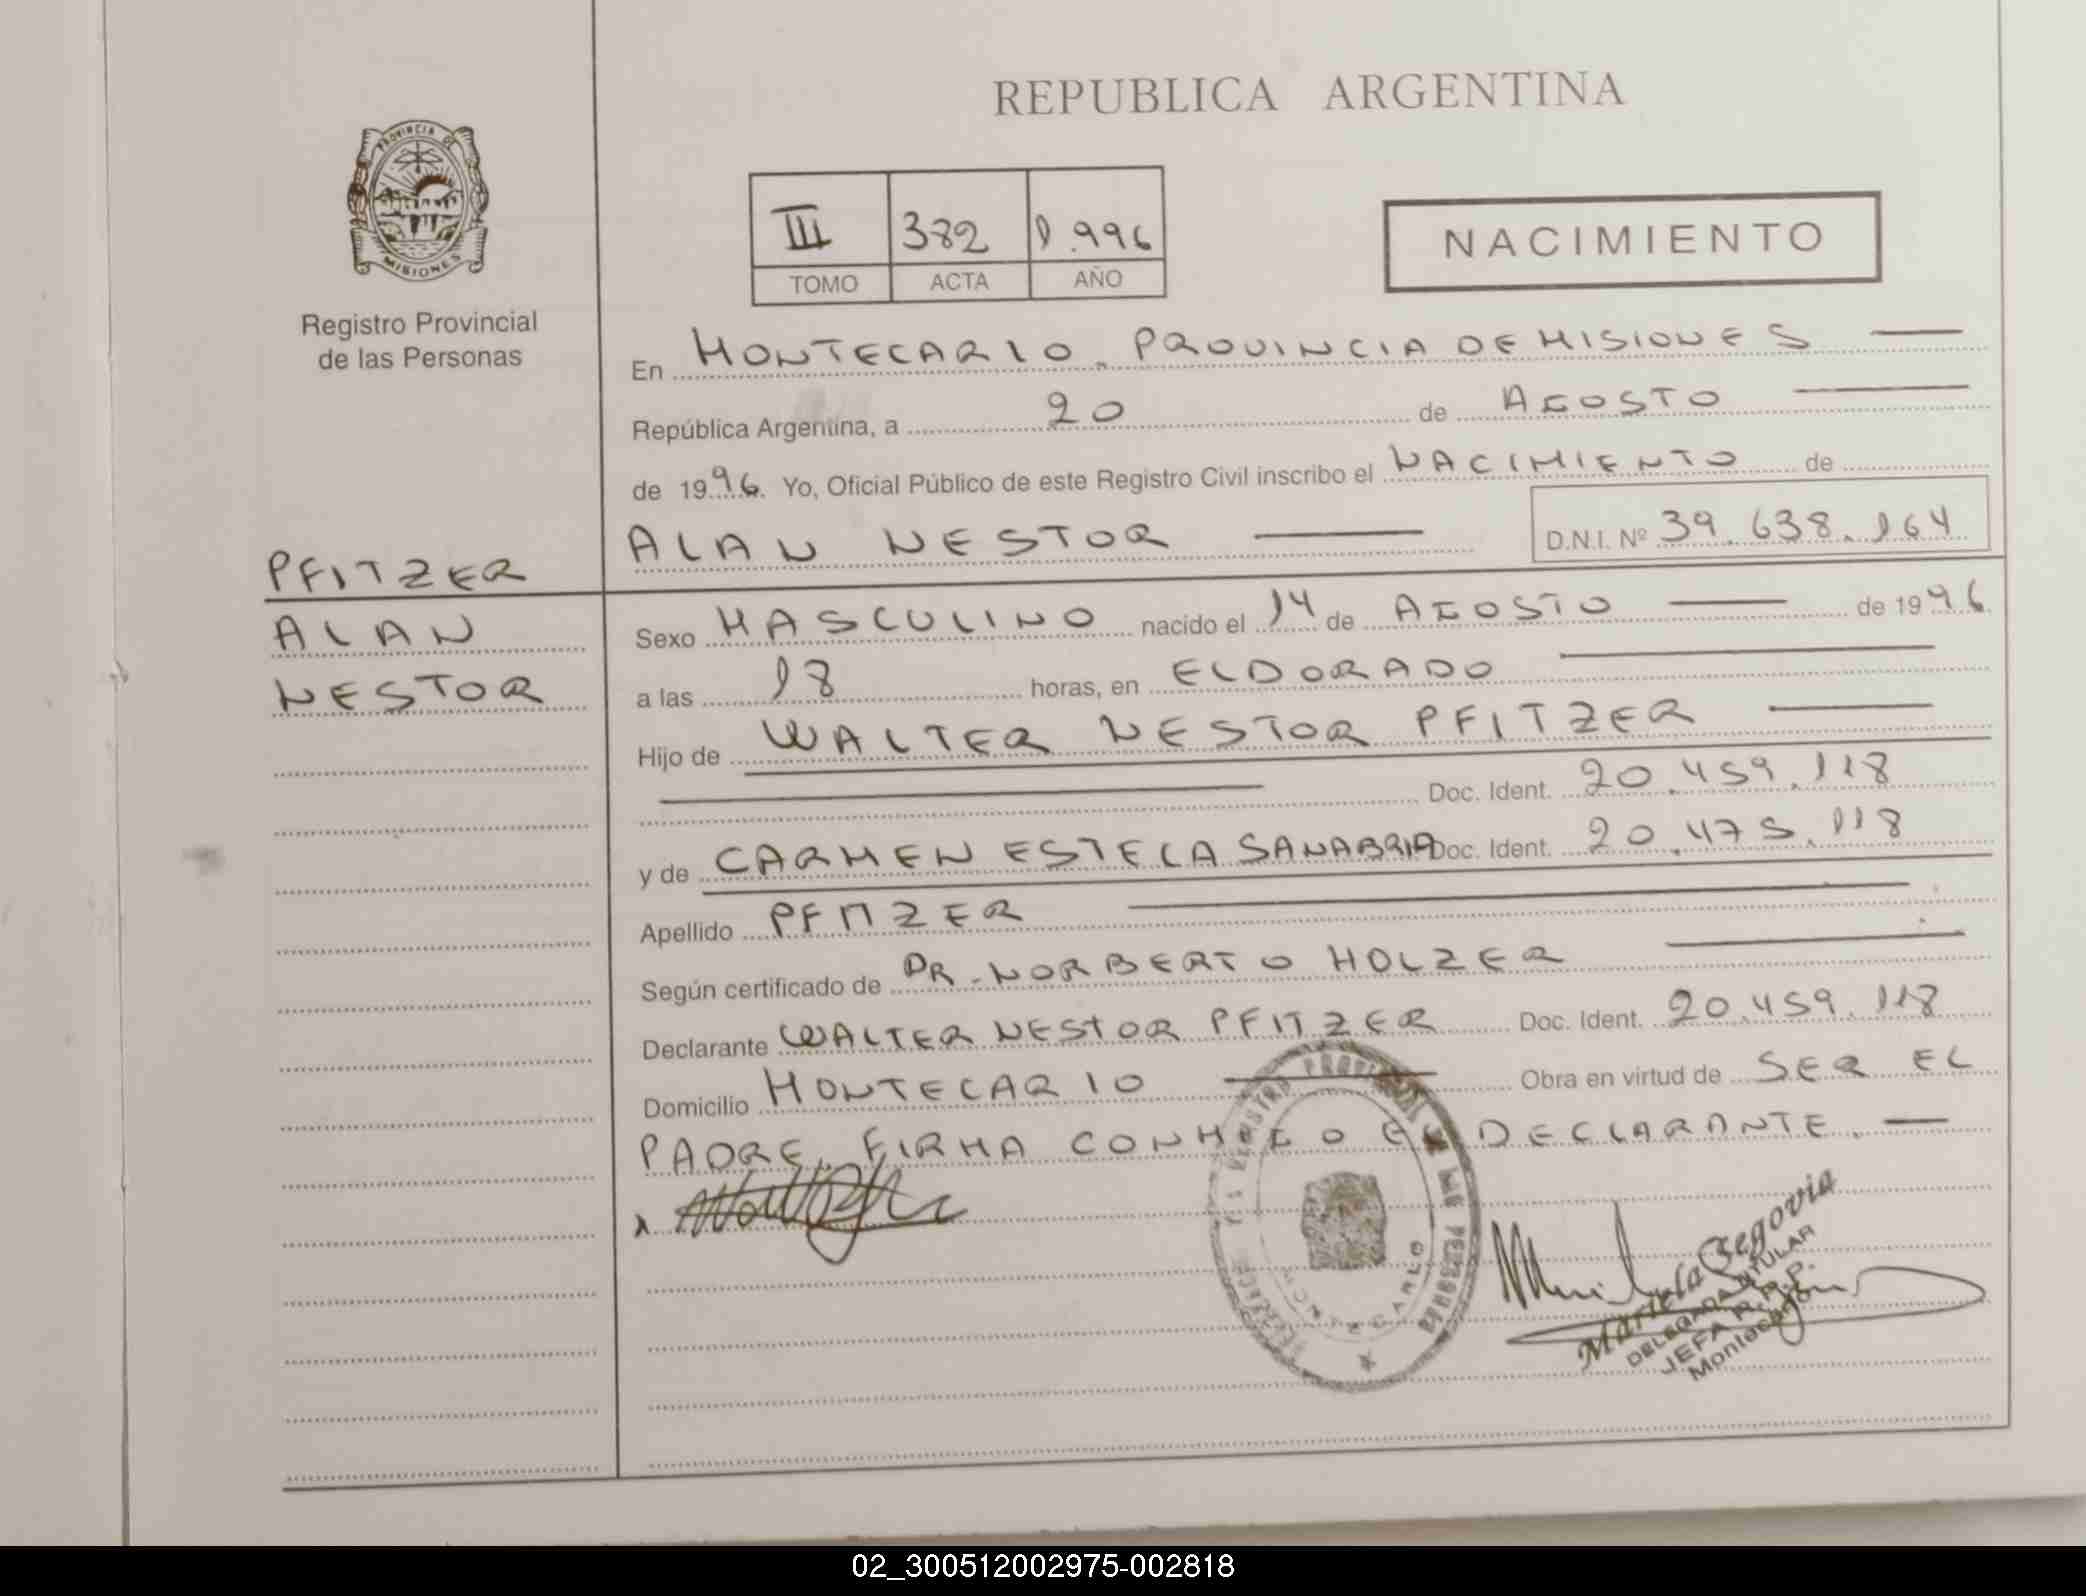 REPUBLICA ARGENTINA
PROVINCIA DE
MISIONES
Registro Provincial
de las Personas
III 382 1.996
TOMO ACTA AÑO
NACIMIENTO
En MONTECARLO, PROVINCIA DE MISIONES
República Argentina, a 20 de AGOSTO
de 1996. Yo, Oficial Público de este Registro Civil inscribo el NACIMIENTO de
ALAN NESTOR D.N.I. Nº 39.638.164
PFITZER
ALAN
NESTOR
Sexo MASCULINO nacido el 14 de AGOSTO de 1996
a las 18 horas, en ELDORADO
Hijo de WALTER NESTOR PFITZER
Doc. Ident. 20.459.118
y de CARMEN ESTELA SANABRIA Doc. Ident. 20.475.118
Apellido PFITZER
Según certificado de DR. NORBERTO HOLZER
Declarante WALTER NESTOR PFITZER Doc. Ident. 20.459.118
Domicilio MONTECARLO Obra en virtud de SER EL
PADRE, FIRMA CONMIGO EL DECLARANTE.
REGISTRO PROVINCIAL DE LAS PERSONAS
MONTECARLO
Mariela Segovia
DELEGADA TITULAR
JEFA R.P.P.
Montecarlo
02_300512002975-002818